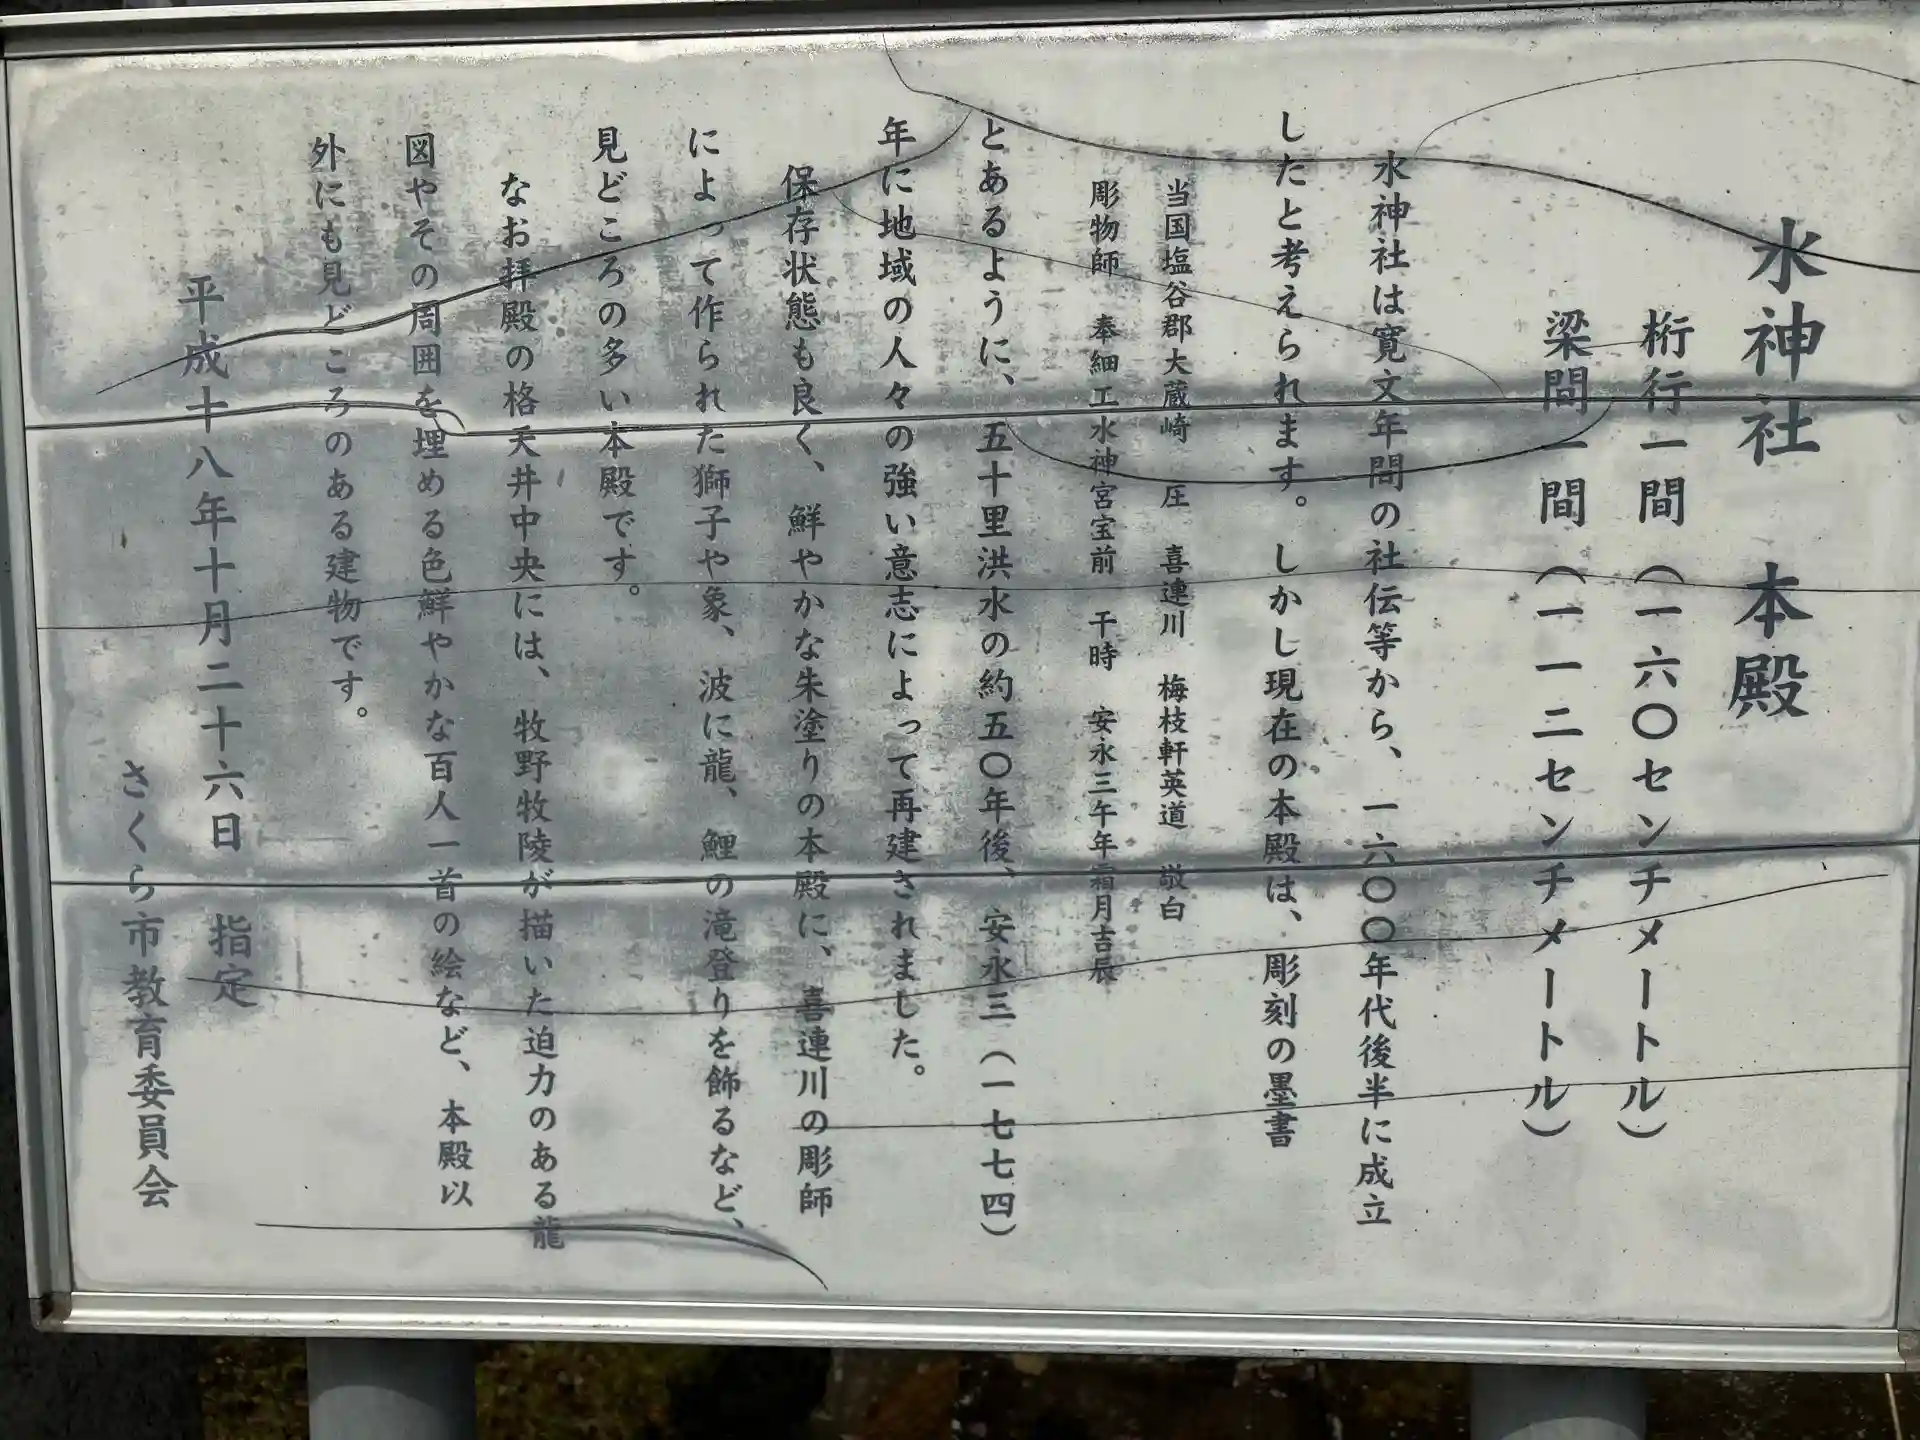 水神社　本殿
桁行一間（一六〇センチメートル）
梁間一間（一一二センチメートル）
水神社は寛文年間の社伝等から、一六〇〇年代後半に成立
したと考えられます。しかし現在の本殿は、彫刻の墨書
当国塩谷郡大蔵崎　圧　喜連川　梅枝軒英道　敬白
彫物師　奉細工水神宮宝前　干時　安永三午年霜月吉辰
とあるように、五十里洪水の約五〇年後、安永三（一七七四）
年に地域の人々の強い意志によって再建されました。
保存状態も良く、鮮やかな朱塗りの本殿に、喜連川の彫師
によって作られた獅子や象、波に龍、鯉の滝登りを飾るなど、
見どころの多い本殿です。
なお拝殿の格天井中央には、牧野牧陵が描いた迫力のある龍
図やその周囲を埋める色鮮やかな百人一首の絵など、本殿以
外にも見どころのある建物です。
平成十八年十月二十六日　指定
さくら市教育委員会